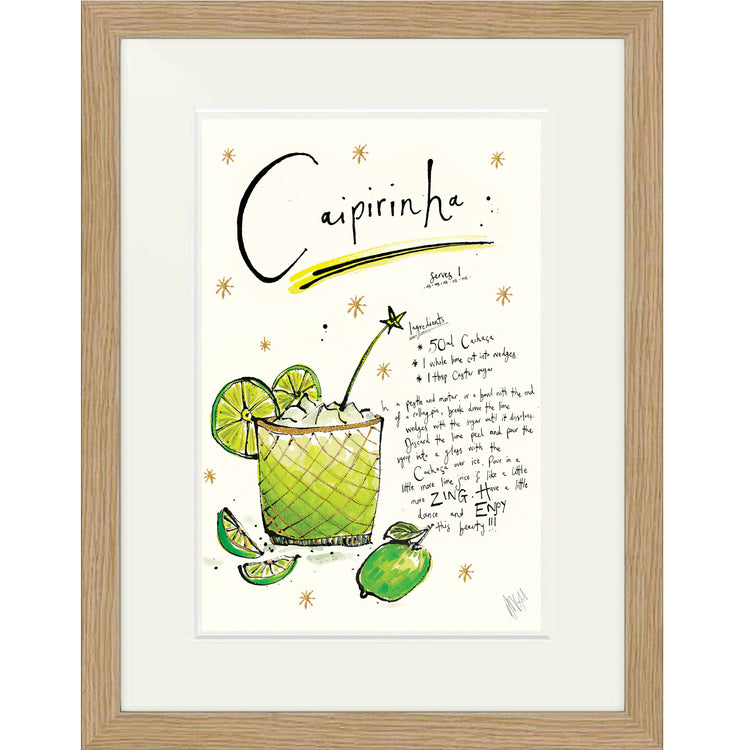 Caipirinha
serves 1
Ingredients
* 50ml Cachaça
* 1 whole lime cut into wedges
* 1 tbsp Caster sugar
In a pestle and mortar, or a bowl with the end
of a rolling pin, break down the lime
wedges with the sugar until it dissolves.
Discard the lime peel and pour the
syrup into a glass with the
Cachaça over ice. Pour in a
little more lime juice if I like a little
more ZING. Have a little
dance and ENJOY
this beauty!!!